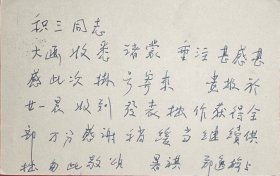 积三同志
大函收悉 诸蒙 垂注 甚感甚
感 此次挂号寄来 贵报于
廿一晨收到 发表拙作获得全
部 万分感谢 稍缓当继续供
拙 勿此敬颂 暑祺 郑逸梅上